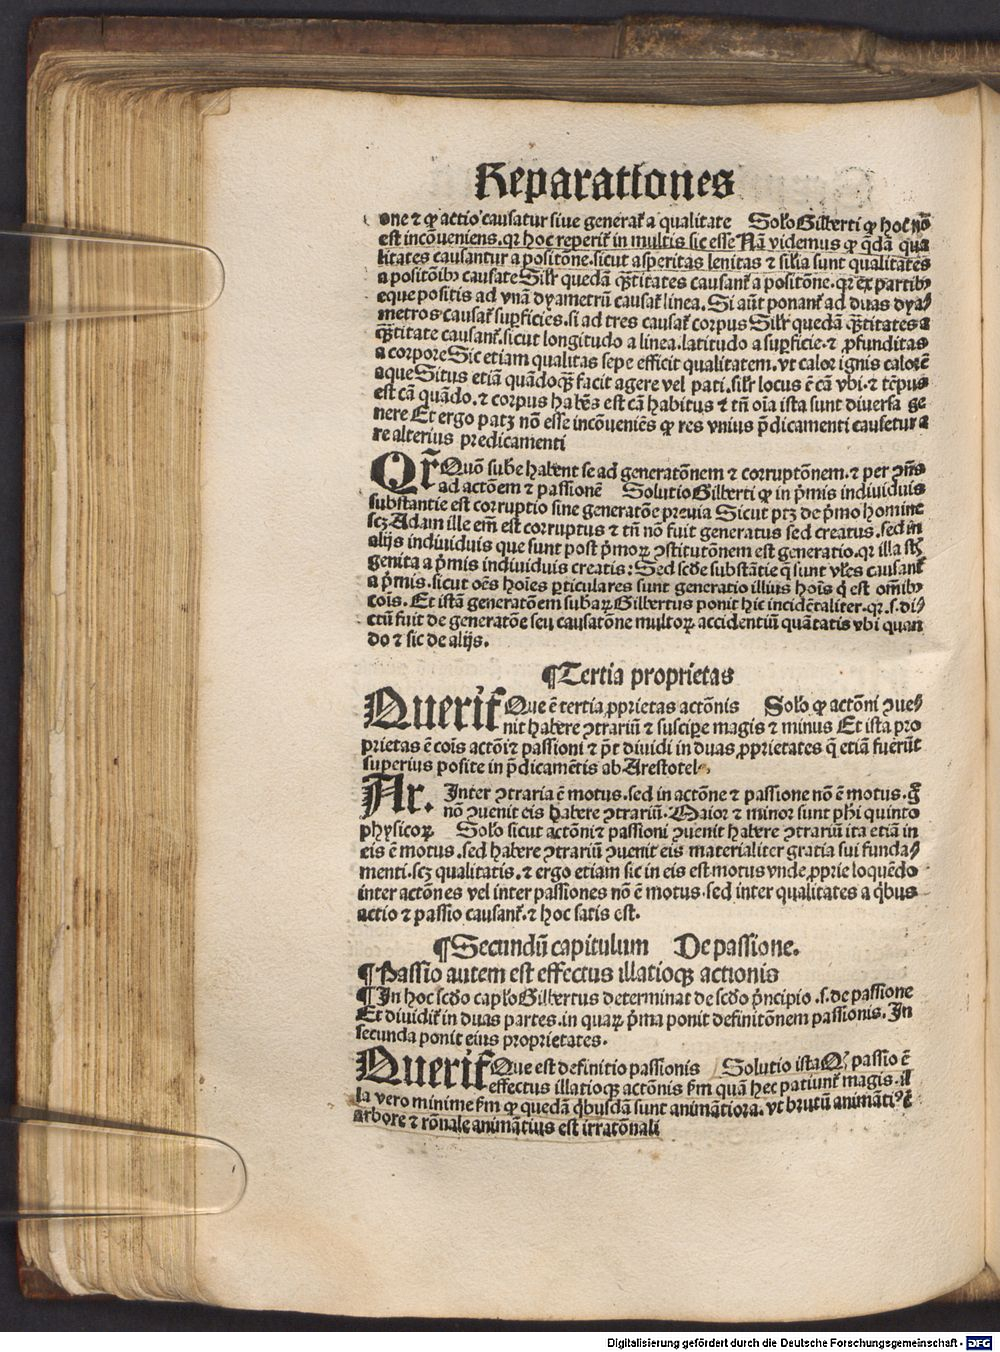 Reparationes
one ⁊ ꝙ actio causatur siue generat̃ a qualitate Solo Gilberti ꝙ hoc nõ
est incõueniens. qꝛ hoc reperit̃ in multis sic esse Nã videmus ꝙ q̃dã qua
litates causantur a positõne. sicut asperitas lenitas ⁊ silia sunt qualitates
a positõib⁹ causate Silr quedã q̃titates causant̃ a positõne. qꝛ ex partib⁹
eque positis ad vnã dyametrũ causat̃ linea. Si aũt ponant̃ ad duas dya⸗
metros causat̃ suꝑficies. si ad tres causat̃ corpus Silr quedã q̃titates a
q̃titate causant̃. sicut longitudo a linea. latitudo a suꝑficie. ⁊ ꝓfunditas
a corpore Sic etiam qualitas sepe efficit qualitatem. vt calor ignis calorẽ
aque Situs etiã quãdoqꝫ facit agere vel pati. silr locus ẽ cã vbi. ⁊ tẽpus
est cã quãdo. ⁊ corpus habẽs est cã habitus ⁊ tñ oĩa ista sunt diuersa ge
nere Et ergo patꝫ nõ esse incõueniẽs ꝙ res vnius p̃dicamenti causetur a
re alterius predicamenti
Qr̃ Quõ sube habent se ad generatõnem ⁊ corruptõnem. ⁊ per ꝯñs
ad actõem ⁊ passionẽ Solutio Gilberti ꝙ in p̃mis indiuiduis
substantie est corruptio sine generatõe preuia Sicut ptꝫ de p̃mo homine
scꝫ Adam ille em̃ est corruptus ⁊ tñ nõ fuit generatus sed creatus. sed in
alijs indiuiduis que sunt post p̃moꝝ ꝯstitutõnem est generatio. qꝛ illa st̃
genita a p̃mis indiuiduis creatis: Sed scðe substãtie q̃ sunt vl̃es causant̃
a p̃mis. sicut oẽs hoĩes ꝑticulares sunt generatio illius hoĩs q̃ est om̃ib⁹
cõis. Et istã generatõem subaꝝ Gilbertus ponit hic incidẽtaliter. qꝛ. s. di⸗
ctũ fuit de generatõe seu causatõne multoꝝ accidentiũ quãtatis vbi quan
do ⁊ sic de alijs.
¶Tertia proprietas
Querit̃ Que ẽ tertia ꝓprietas actõnis Solo ꝙ actõni ꝯue⸗
nit habere ꝯtrariũ ⁊ susciꝑe magis ⁊ minus Et ista pro
prietas ẽ cõis actõi ⁊ passioni ⁊ p̃t diuidi in duas ꝓprietates q̃ etiã fuerũt
superius posite in p̃dicamẽtis ab Arestotel⸗,
Ar. Inter ꝯtraria ẽ motus. sed in actõne ⁊ passione nõ ẽ motus. g̃
nõ ꝯuenit eis habere ꝯtrariũ. Maior ⁊ minor sunt ph̃i quinto
physicoꝝ. Solo sicut actõni ⁊ passioni ꝯuenit habere ꝯtrariũ ita etiã in
eis ẽ motus. sed habere ꝯtrariũ ꝯuenit eis materialiter gratia sui funda⸗
menti. scꝫ qualitatis. ⁊ ergo etiam sic in eis est motus vnde ꝓprie loquẽdo
inter actõnes vel inter passiones nõ ẽ motus. sed inter qualitates a q̃bus
actio ⁊ passio causant̃. ⁊ hoc satis est.
¶Secundũ capitulum De passione.
¶Passio autem est effectus illatioqꝫ actionis
¶In hoc scðo caplo Gilbertus determinat de scðo p̃ncipio. s. de passione
Et diuidit̃ in duas partes. in quaꝝ p̃ma ponit definitõnem passionis. In
secunda ponit eius proprietates.
Querit̃ Que est definitio passionis Solutio ista Q, passio ẽ
effectus illatioqꝫ actõnis ẽm quã hec patiunt̃ magis. il
la vero minime ẽm ꝙ quedã q̃busdã sunt animatiora. vt brutũ animati⁹ ẽ
arbore ⁊ rõnale animãtius est irratõnali
Digitalisierung gefördert durch die Deutsche Forschungsgemeinschaft - DFG